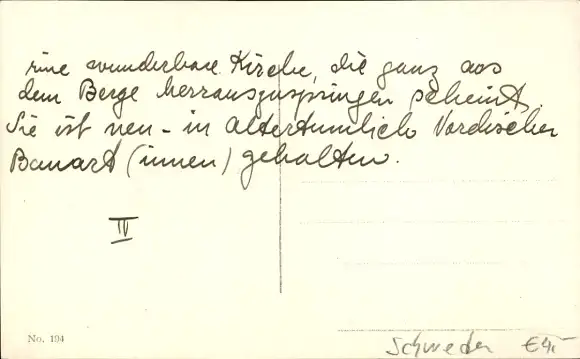 eine wunderbare Kirche, die ganz aus
dem Berge herrauszuspringen scheint.
Sie ist neu - in altertumlich Nordischer
Bauart (innen) gehalten.
IV
No. 194
Schweden €4,-